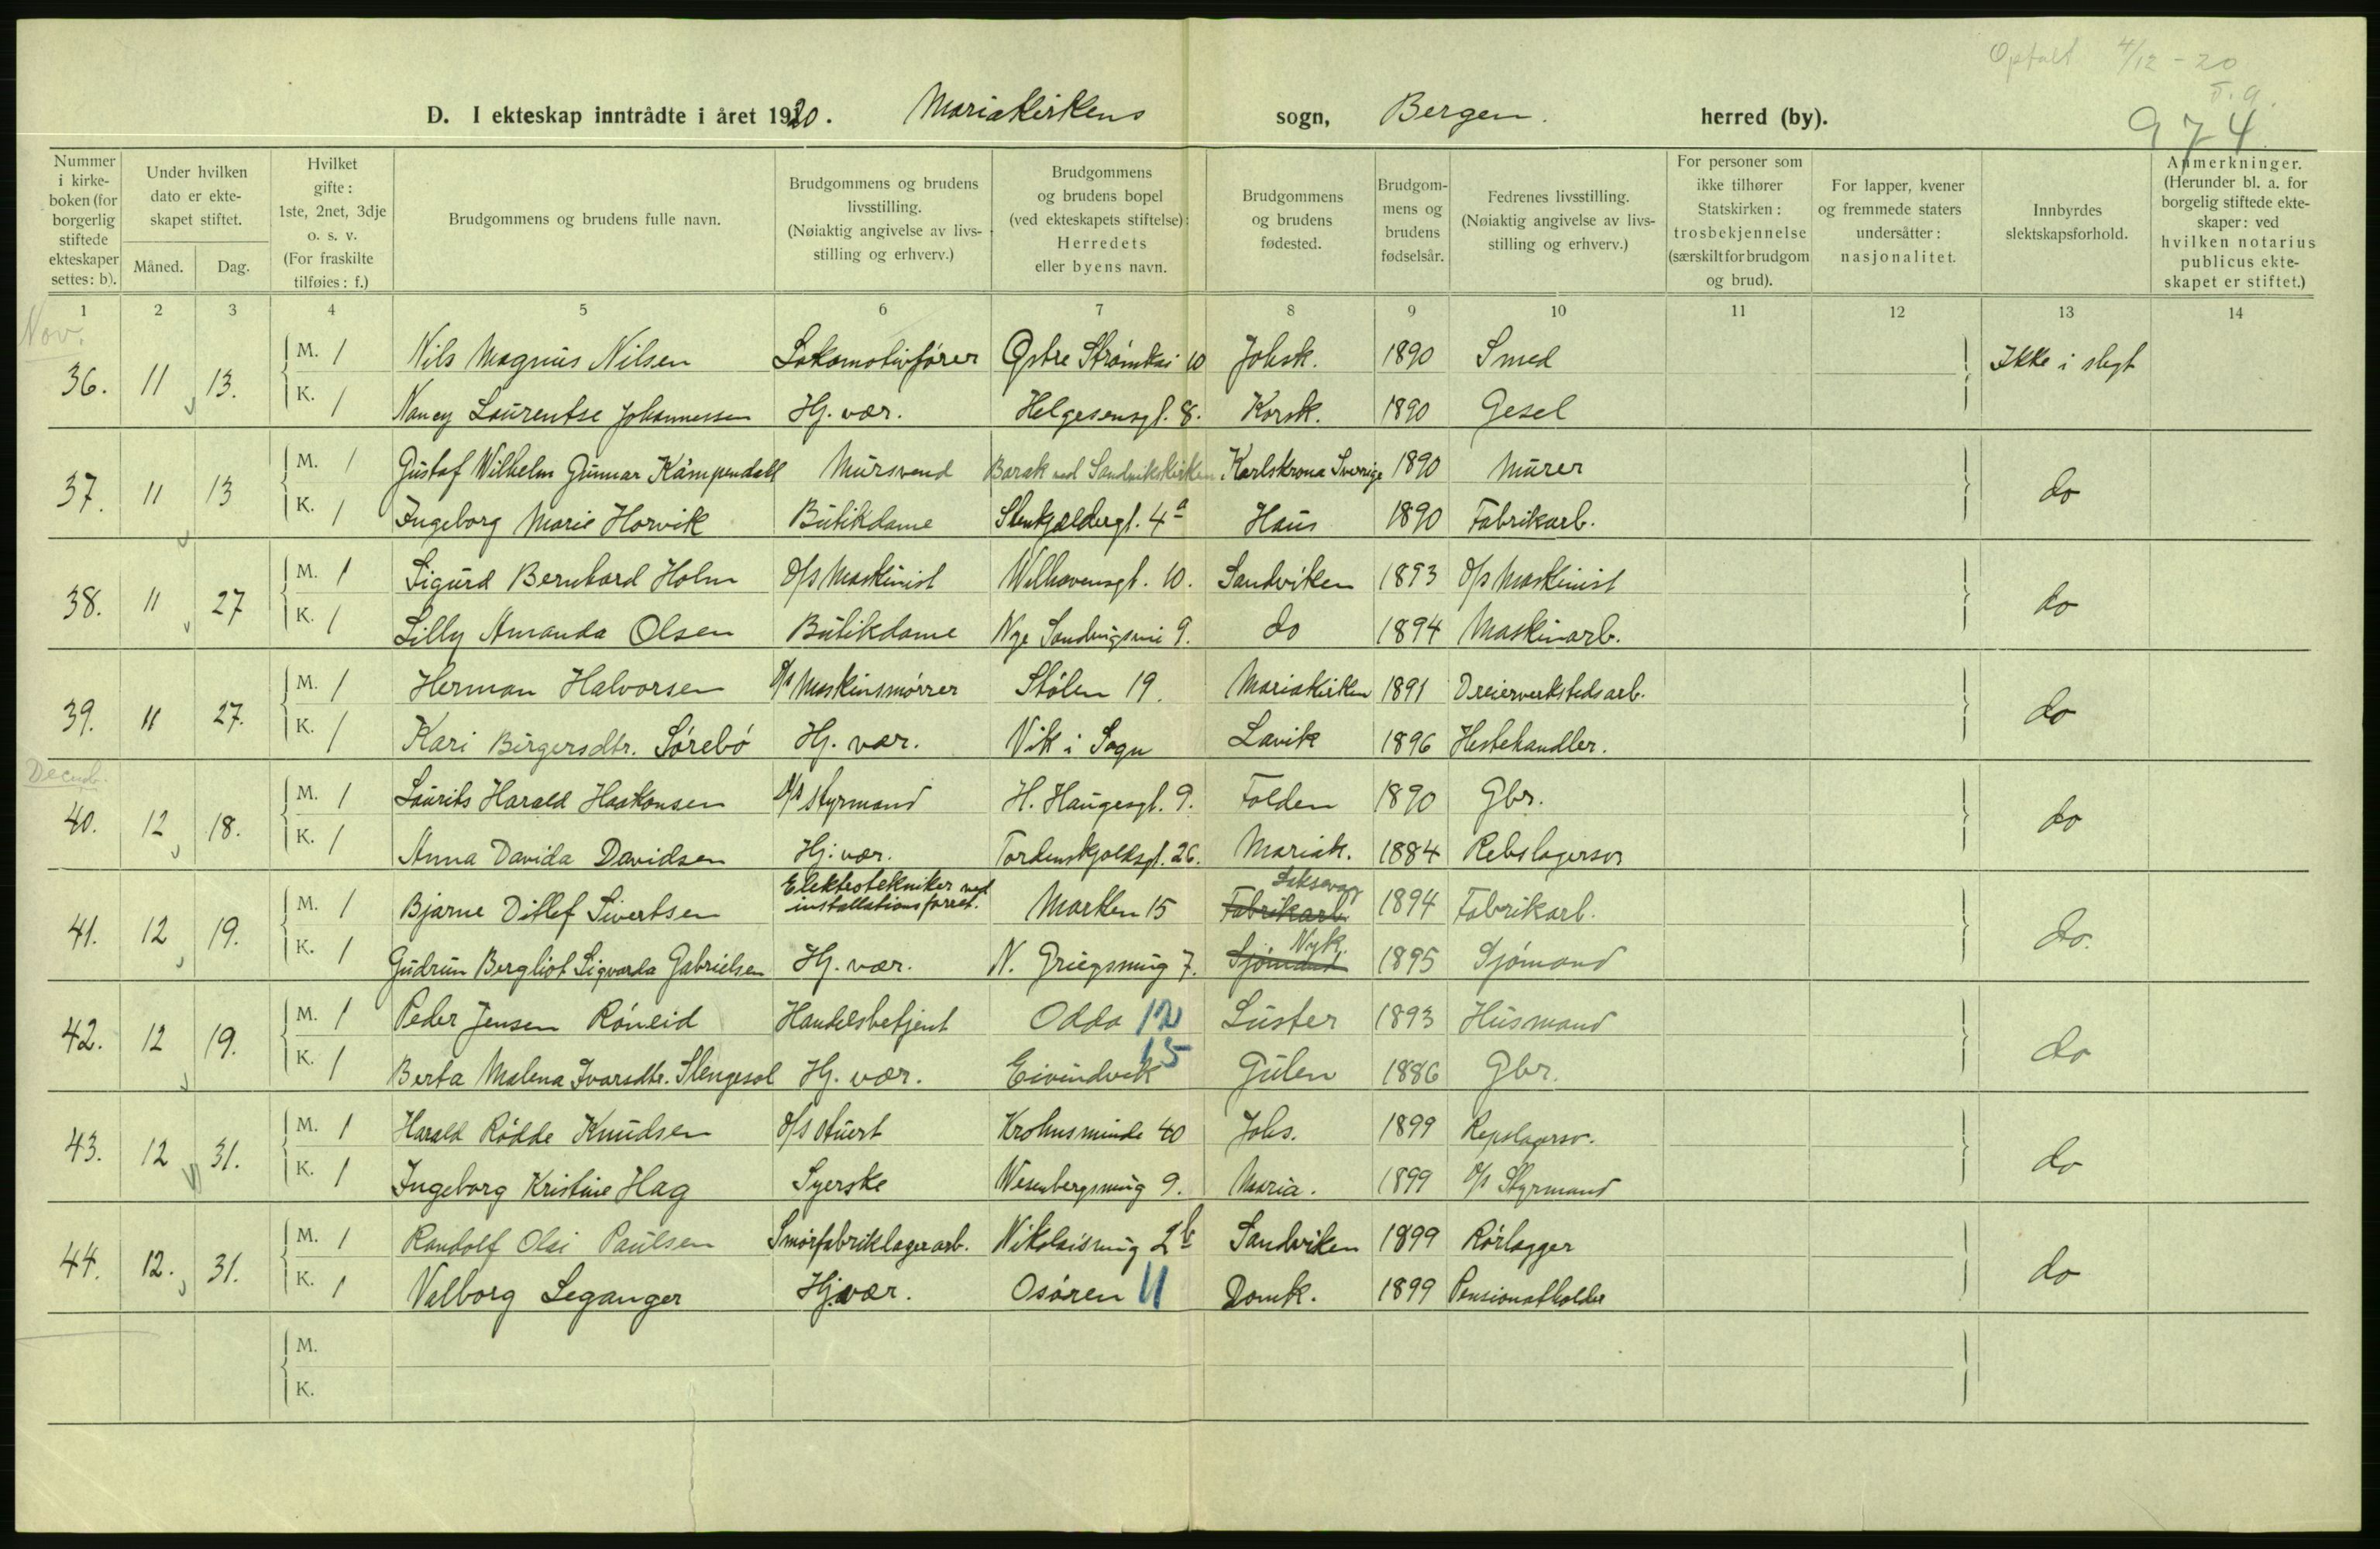 Optalt 4/12 - 20
D. I ekteskap inntrådte i året 1920. Mariakirkens sogn, Bergen. herred (by).
974
Nummer i kirkeboken (for borgerlig stiftede ekteskaper settes: b).
Under hvilken dato er ekteskapet stiftet.
Måned. Dag.
Hvilket gifte: 1ste, 2net, 3dje o. s. v. (For fraskilte tilføies: f.)
Brudgommens og brudens fulle navn.
Brudgommens og brudens livsstilling. (Nøiaktig angivelse av livsstilling og erhverv.)
Brudgommens og brudens bopel (ved ekteskapets stiftelse): Herredets eller byens navn.
Brudgommens og brudens fødested.
Brudgommens og brudens fødselsår.
Fedrenes livsstilling. (Nøiaktig angivelse av livsstilling og erhverv.)
For personer som ikke tilhører Statskirken: trosbekjennelse (særskilt for brudgom og brud).
For lapper, kvener og fremmede staters undersåtter: nasjonalitet.
Innbyrdes slektskapsforhold.
Anmerkninger. (Herunder bl. a. for borgelig stiftede ekteskaper: ved hvilken notarius publicus ekteskapet er stiftet.)
1 2 3 4 5 6 7 8 9 10 11 12 13 14
Nov.
36. 11 13. M. 1 Nils Magnus Nilsen Lokomotivfører Østre Strømkai 10 Johsk. 1890 Smed Ikke i slegt
K. 1 Nancy Laurentse Johannessen Hj. vær. Helgesensgt. 8. Korsk. 1890 Gesel
37. 11 13 M. 1 Gustaf Wilhelm Gunnar Kämpendahl Mursvend Barak ved Sandvikskirken Karlskrona Sverige 1890 Murer do
K. 1 Ingeborg Marie Horvik Butikdame Stenkjeldergt. 4a Haus 1890 Fabrikarb.
38. 11 27 M. 1 Sigurd Bernhard Holm D/s Maskinist Welhavensgt. 10. Sandviken 1893 D/s Maskinist do
K. 1 Lilly Amanda Olsen Butikdame Nye Sandvigsvei 9. do 1894 Maskinarb.
39. 11 27. M. 1 Herman Halvorsen D/s Maskinsmører Stølen 19. Mariakirken 1891 Dreierverkstedsarb. do
K. 1 Kari Birgersdtr. Sørebø Hj. vær. Vik i Sogn Lavik 1896 Hestehandler.
Decemb.
40. 12 18. M. 1 Laurits Harald Haakonsen D/s Styrmand H. Haugesgt. 9. Folden 1890 Gbr. do
K. 1 Anna Davida Davidsen Hj. vær. Tordenskjoldsgt. 26. Mariak. 1884 Rebslagersv
41. 12 19. M. 1 Bjarne Ditlef Sivertsen Elektrotekniker ved installationsforret. Marken 15 Fabrikarb. Laksevag 1894 Fabrikarb. do.
K. 1 Gudrun Bergliot Sigvarda Gabrielsen Hj. vær. N. Griegsmug 7. Sjömand Nyk. 1895 Sjömand
42. 12 19. M. 1 Peder Jensen Röneid Handelsbetjent Odda 12 Luster 1893 Husmand do
K. 1 Berta Malena Ivarsdtr. Stengesol Hj. vær. Eivindvik 15 Gulen 1886 Gbr.
43. 12 31. M. 1 Harald Rödde Knudsen D/s Stuert Krohnsminde 40 Johs. 1899 Repslagersv. do
K. 1 Ingeborg Kristine Hag Syerske Wesenbergsmug 9. Maria. 1899 D/s Styrmand
44. 12. 31. M. 1 Randolf Olai Paulsen Smörfabriklagerarb. Nikolaismug 2b Sandviken 1899 Rörlægger do
K. 1 Valborg Leganger Hj. vær. Osören 11 Domk. 1899 Pensionatholder
M.
K.